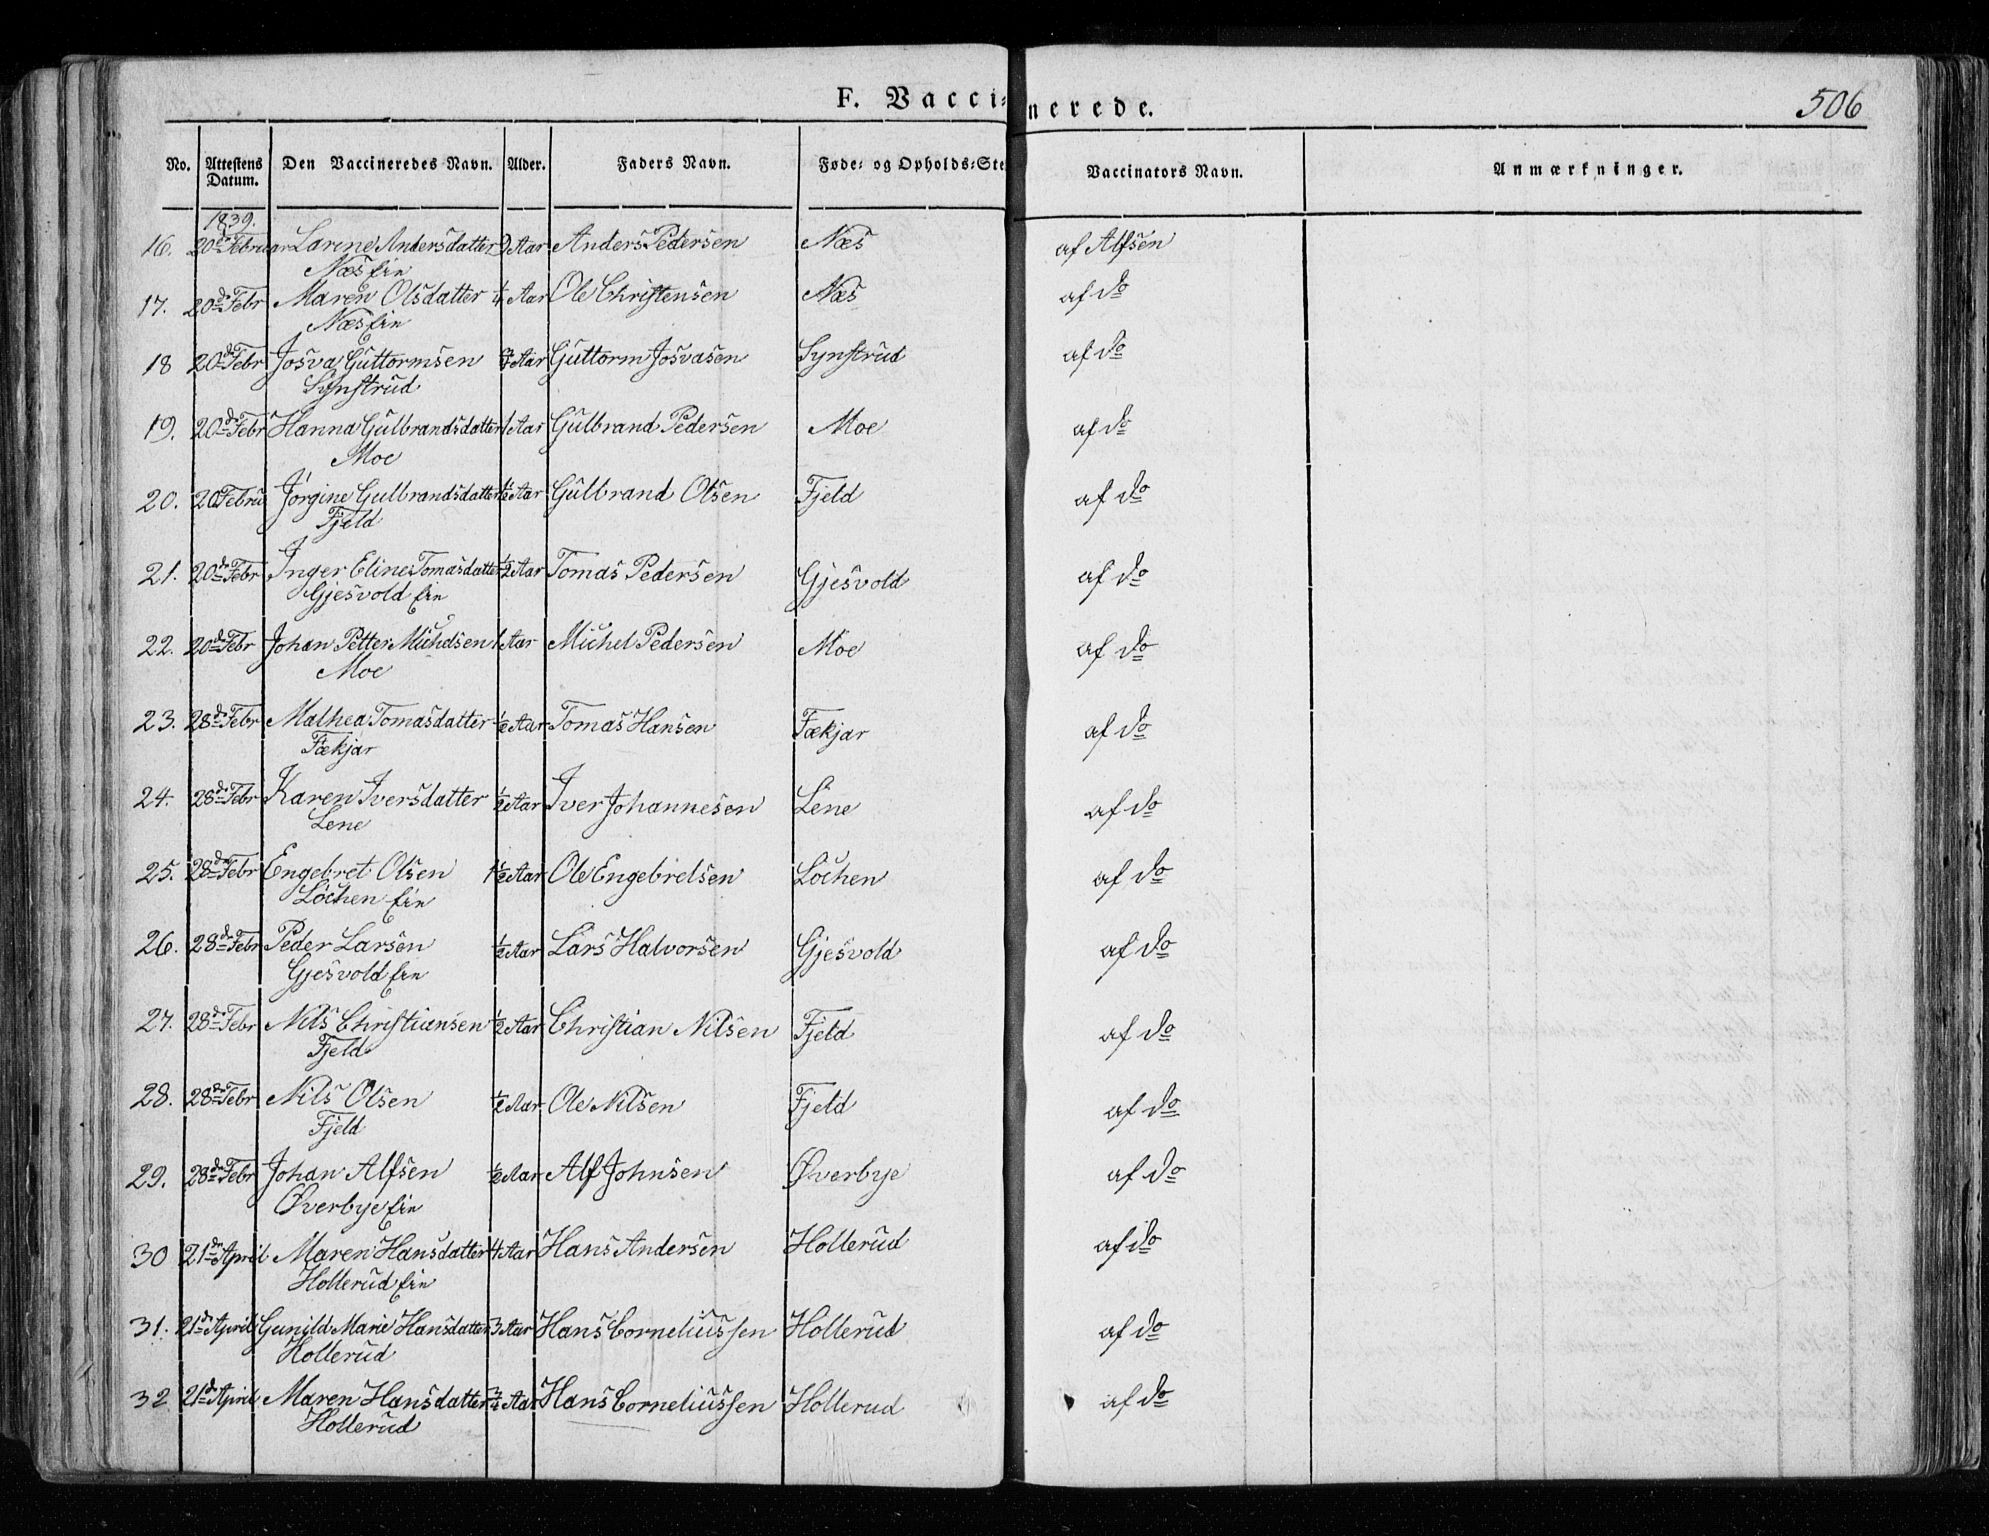 F. Vaccinerede. 506
No. Attestens Datum. Den Vaccineredes Navn. Alder. Faders Navn. Føde- og Opholds-Ste Vaccinators Navn. Anmærkninger.
1839.
16. 20de Februar Larine Andersdatter 2 Aar Anders Pedersen Næs af Alfsen
Næs Eie
17. 20de Febr Maren Olsdatter ¼ Aar Ole Christensen Næs af do
Næs Eie
18 20de Febr Josva Guttormsen ¾ Aar Guttorm Josvasen Synstrud af do
Synstrud
19. 20de Febr Hanna Gulbrandsdatter 1 Aar Gulbrand Pedersen Moe af do
Moe
20. 20 Febru Jørgine Gulbrandsdatter ½ Aar Gulbrand Olsen Fjeld af do
Fjeld
21. 20de Febr Inger Eline Tomasdatter ½ Aar Tomas Pedersen Gjesvold af do
Gjesvold Eie
22. 20de Febr Johan Petter Michelsen 1 Aar Michel Pedersen Moe af do
Moe
23. 28de Febr Mathea Tomasdatter ½ Aar Tomas Hansen Fækjar af do
Fækjar
24. 28de Febr Karen Iversdatter ½ Aar Iver Johannesen Lene af do
Lene
25. 28de Febr Engebret Olsen 1½ Aar Ole Engebretsen Løchen af do
Løchen Eie
26. 28de Febr Peder Larsen ½ Aar Lars Halvorsen Gjesvold af do
Gjesvold Eie
27. 28de Febr Nils Christiansen ½ Aar Christian Nilsen Fjeld af do
Fjeld
28. 28de Febr Nils Olsen ½ Aar Ole Nilsen Fjeld af do
Fjeld
29. 28de Febr Johan Alfsen ½ Aar Alf Johnsen Øverbye af do
Øverbye Eie
30 21de April Maren Hansdatter 4 Aar Hans Andersen Hollerud af do
Hollerud Eie
31. 21de April Gunild Marie Hansdatter 3 Aar Hans Corneliussen Hollerud af do
Hollerud
32 21de April Maren Hansdatter ¾ Aar Hans Corneliussen Hollerud af do
Hollerud